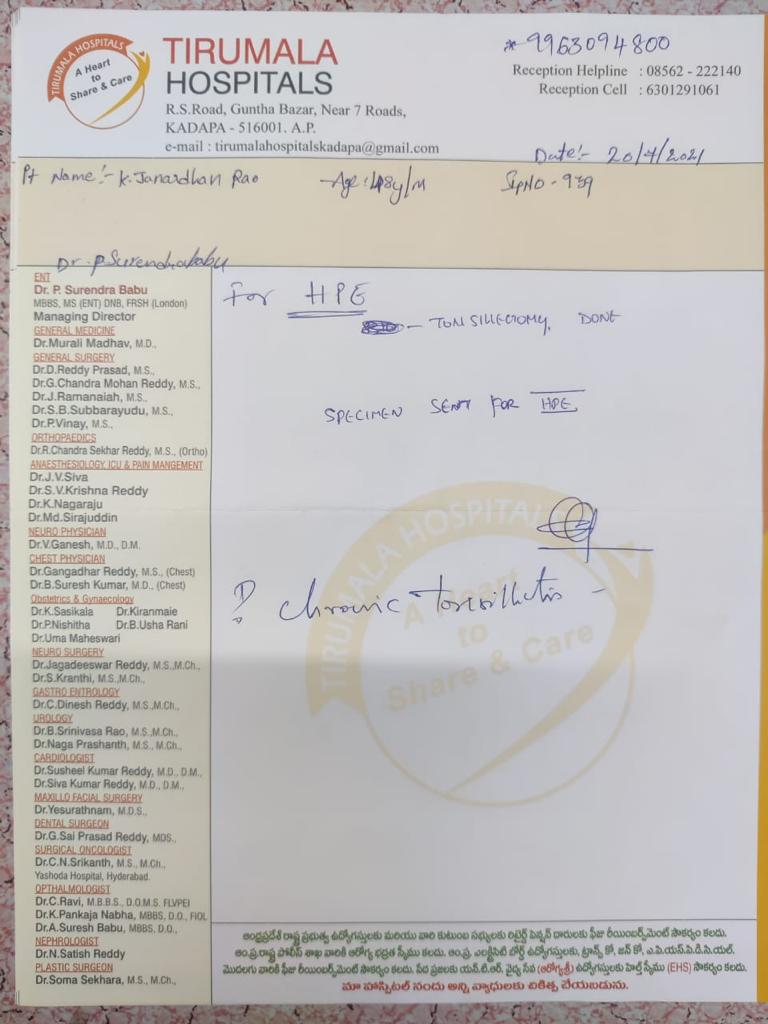 TIRUMALA HOSPITALS
A Heart
to
Share & Care
TIRUMALA
HOSPITALS
R.S.Road, Guntha Bazar, Near 7 Roads,
KADAPA - 516001. A.P.
e-mail : tirumalahospitalskadapa@gmail.com
*-9963094800
Reception Helpline : 08562 - 222140
Reception Cell : 6301291061
Date:- 20/4/2021
Pt Name:- K. Janardhan Rao -Age: 48y/M IpNO - 939
Dr. P. Surendrababu
ENT
Dr. P. Surendra Babu
MBBS, MS (ENT) DNB, FRSH (London)
Managing Director
GENERAL MEDICINE
Dr.Murali Madhav, M.D.,
GENERAL SURGERY
Dr.D.Reddy Prasad, M.S.,
Dr.G.Chandra Mohan Reddy, M.S.,
Dr.J.Ramanaiah, M.S.,
Dr.S.B.Subbarayudu, M.S.,
Dr.P.Vinay, M.S.,
ORTHOPAEDICS
Dr.R.Chandra Sekhar Reddy, M.S., (Ortho)
ANAESTHESIOLOGY, ICU & PAIN MANGEMENT
Dr.J.V.Siva
Dr.S.V.Krishna Reddy
Dr.K.Nagaraju
Dr.Md.Sirajuddin
NEURO PHYSICIAN
Dr.V.Ganesh, M.D., D.M.
CHEST PHYSICIAN
Dr.Gangadhar Reddy, M.S., (Chest)
Dr.B.Suresh Kumar, M.D., (Chest)
Obstetrics & Gynaecology
Dr.K.Sasikala Dr.Kiranmaie
Dr.P.Nishitha Dr.B.Usha Rani
Dr.Uma Maheswari
NEURO SURGERY
Dr.Jagadeeswar Reddy, M.S.,M.Ch.,
Dr.S.Kranthi, M.S.,M.Ch.,
GASTRO ENTROLOGY
Dr.C.Dinesh Reddy, M.S., M.Ch.,
UROLOGY
Dr.B.Srinivasa Rao, M.S.,M.Ch.,
Dr.Naga Prashanth, M.S., M.Ch.,
CARDIOLOGIST
Dr.Susheel Kumar Reddy, M.D., D.M.,
Dr.Siva Kumar Reddy, M.D., D.M.,
MAXILLO FACIAL SURGERY
Dr.Yesurathnam, M.D.S.,
DENTAL SURGEON
Dr.G.Sai Prasad Reddy, MDS.,
SURGICAL ONCOLOGIST
Dr.C.N.Srikanth, M.S., M.Ch.,
Yashoda Hospital, Hyderabad.
OPTHALMOLOGIST
Dr.C.Ravi, M.B.B.S., D.O.M.S. FLVPEI
Dr.K.Pankaja Nabha, MBBS, D.O., FIOL
Dr.A.Suresh Babu, MBBS, D.O.,
NEPHROLOGIST
Dr.N.Satish Reddy
PLASTIC SURGEON
Dr.Soma Sekhara, M.S., M.Ch.,
For HPE
- TONSILLECTOMY DONE
SPECIMEN SENT FOR HPE
? Chronic Tonsillitis -
TIRUMALA HOSPITALS
A Heart
to
Share & Care
ఆంధ్రప్రదేశ్ రాష్ట్ర ప్రభుత్వ ఉద్యోగస్తులకు మరియు వారి కుటుంబ సభ్యులకు రిటైర్డ్ పెన్షన్ దారులకు ఫీజు రీయింబర్స్‌మెంట్ సౌకర్యం కలదు.
ఆం.ప్ర.రాష్ట్ర పోలీస్ శాఖ వారికి ఆరోగ్య భద్రత స్కీము కలదు. ఆం.ప్ర. ఎలక్ట్రిసిటీ బోర్డ్ ఉద్యోగస్తులకు, ట్రాన్స్ కో, జన్ కో, ఎ.పి.యస్.పి.డి.సి.యల్.
మొదలగు వారికి ఫీజు రీయింబర్స్‌మెంట్ సౌకర్యం కలదు. పేద ప్రజలకు యన్.టి.ఆర్. వైద్య సేవ (ఆరోగ్యశ్రీ) ఉద్యోగస్తులకు హెల్త్ స్కీము (EHS) సౌకర్యం కలదు.
మా హాస్పిటల్ నందు అన్ని వ్యాధులకు చికిత్స చేయబడును.